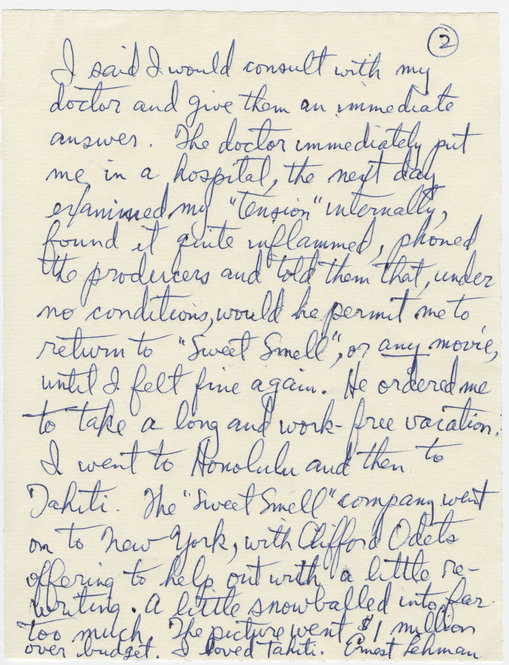 2
I said I would consult with my
doctor and give them an immediate
answer. The doctor immediately put
me in a hospital, the next day
examined my "tension" internally,
found it quite inflammed, phoned
the producers and told them that, under
no conditions, would he permit me to
return to "Sweet Smell", or any movie,
until I felt fine again. He ordered me
to take a long and work-free vacation.
I went to Honolulu and then to
Tahiti. The "Sweet Smell" company went
on to New York, with Clifford Odets
offering to help out with a little re-
writing. A little snowballed into far
too much. The picture went $1 million
over budget. I loved Tahiti. Ernest Lehman